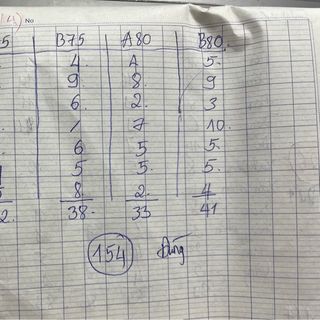 4) No
5 B75 A80 B80.
4. 4 5.
9. 8. 9
6. 2. 3
/ 7 10.
6 5 5.
5 5. 5.
8. 2. 4
2. 38. 33 41
154 Đúng